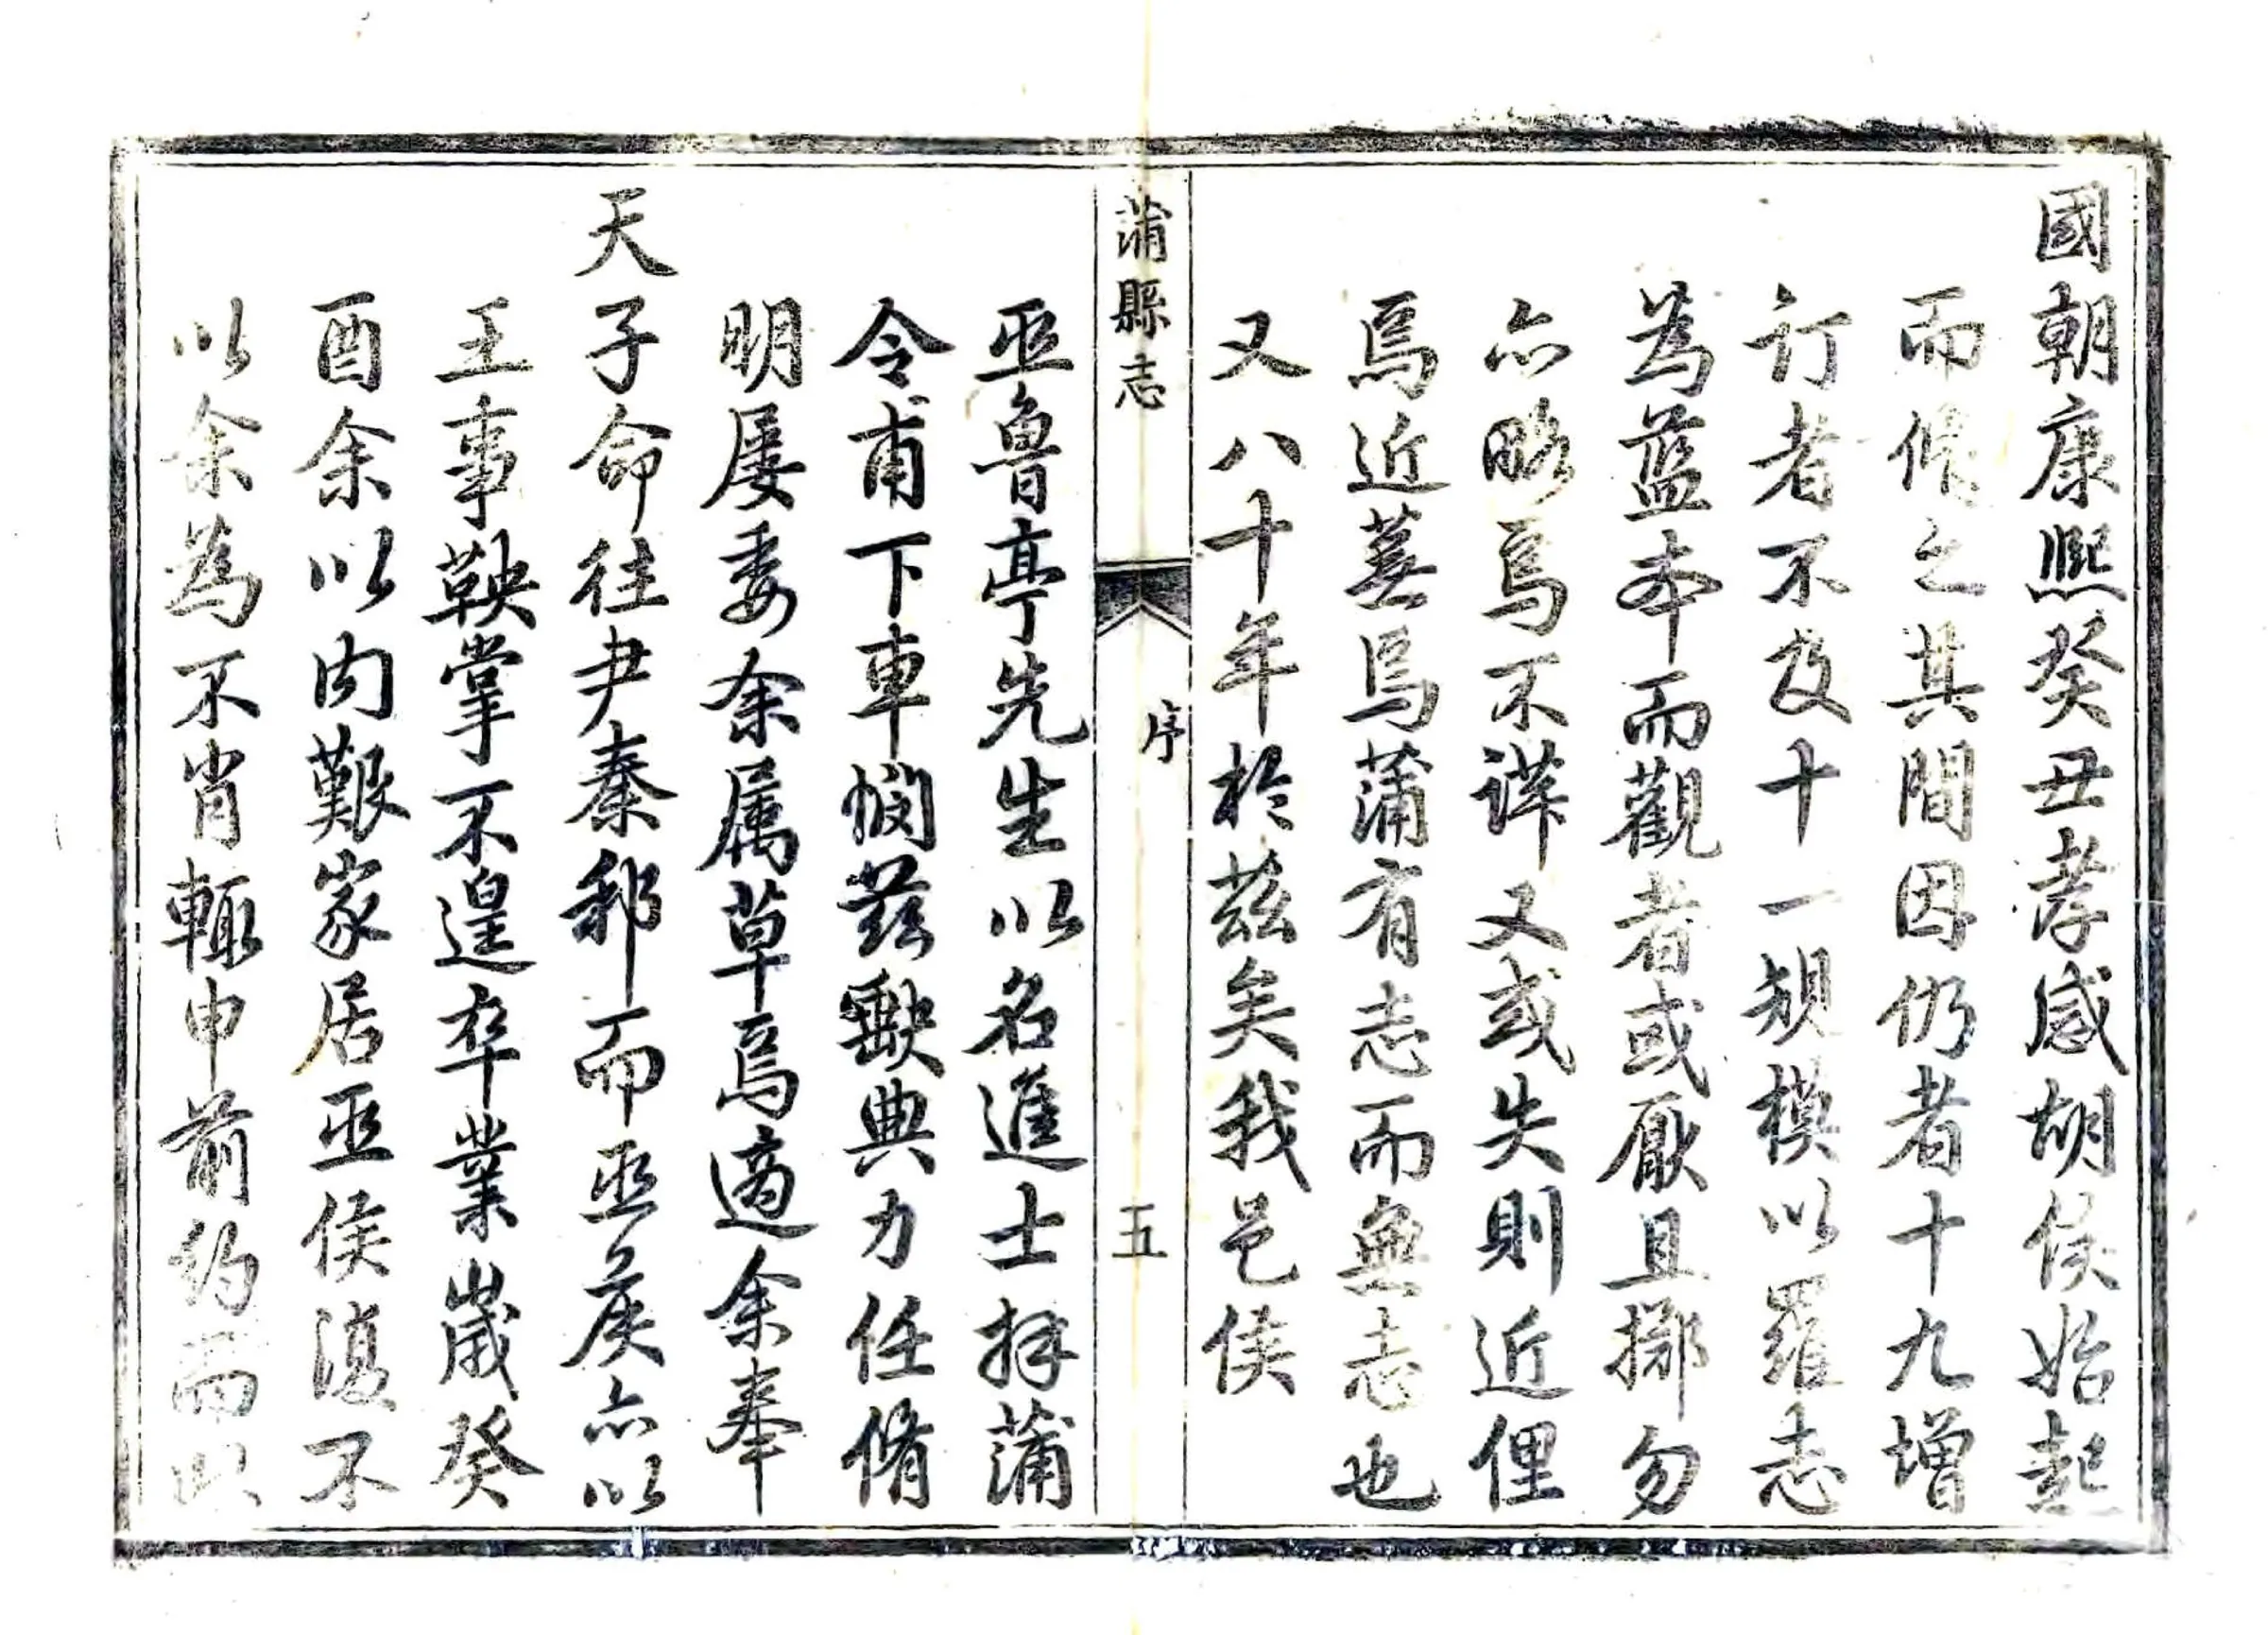 國朝康熙癸丑孝感胡侯始起
而修之其間因仍者十九增
訂者不及十一規模以羅志
為藍本而觀者或厭且擲勿
亦略焉不詳又或失則近俚
焉近蕪焉蒲有志而無志也
又八十年於茲矣我邑侯
蒲縣志
序
五
巫魯亭先生以名進士擇蒲
令甫下車憫茲缺典力任脩
明屡委余属草焉適余奉
天子命往尹秦郵而巫矦亦以
王事鞅掌不遑卒業歲癸
酉余以内艱家居巫侯復不
以余為不肖輒申前約而以